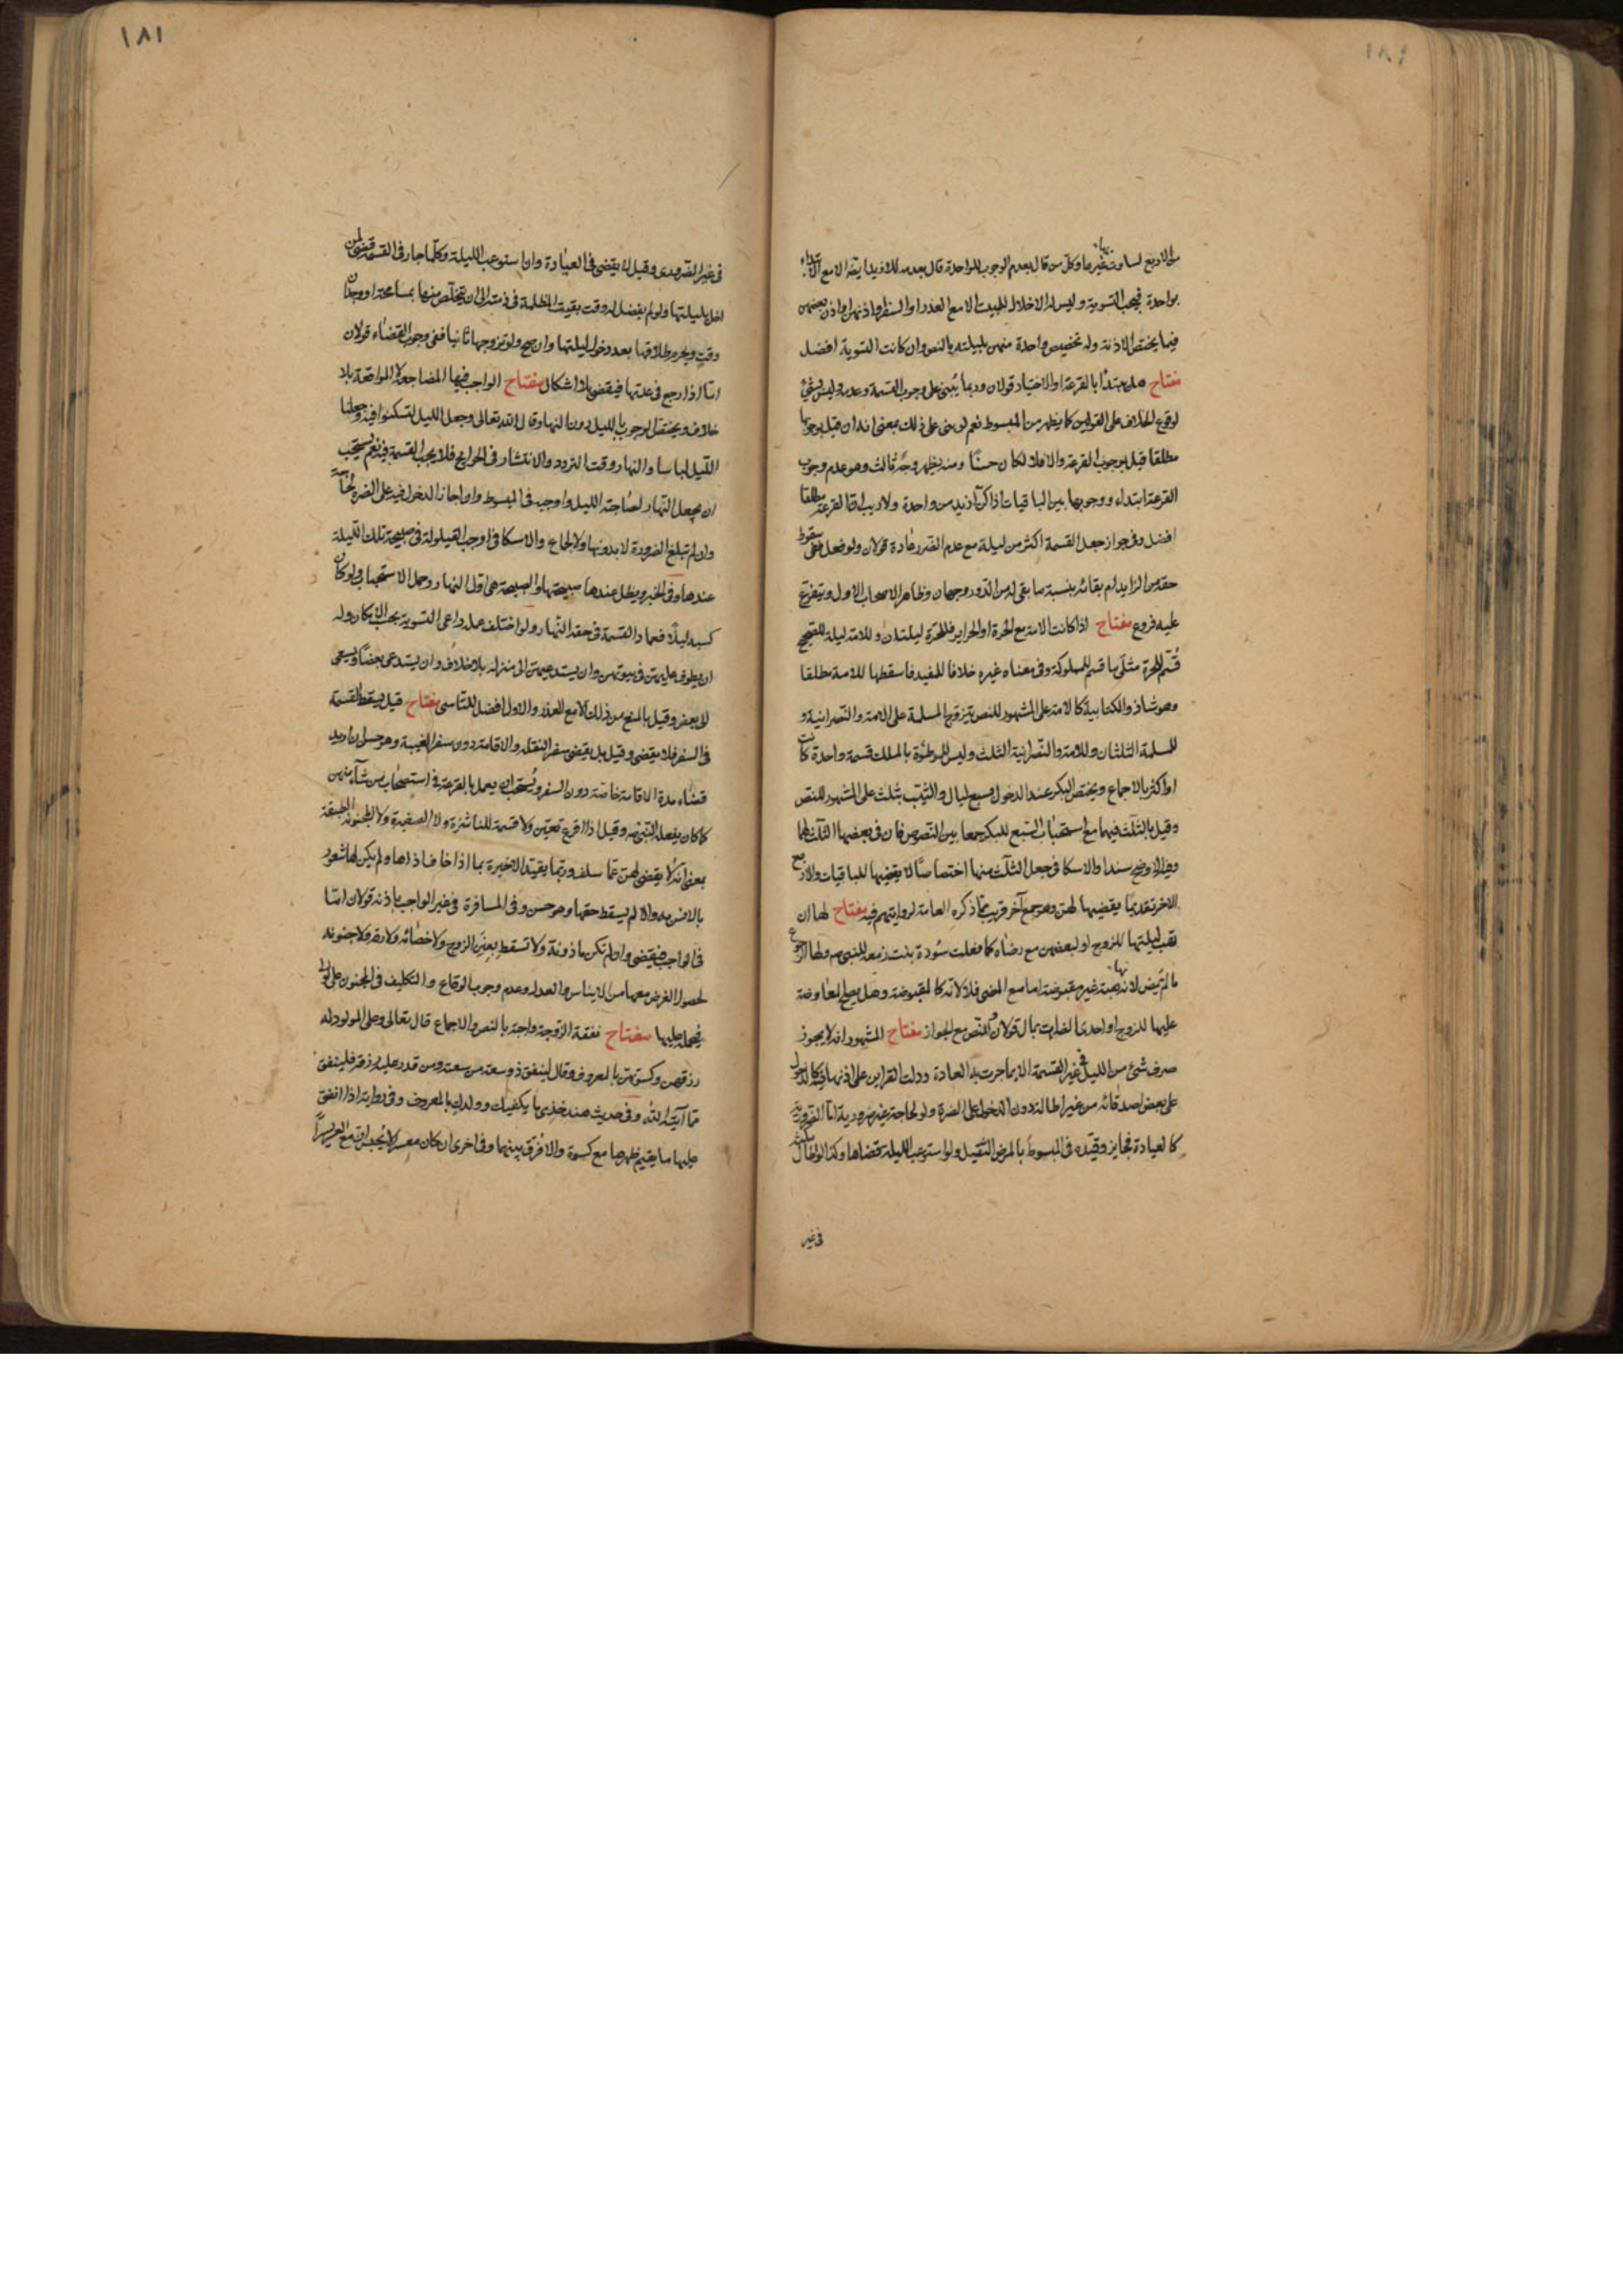 من الاربع لمساوتها غيرها وكل من قال بعدم الوجوب للواحدة قال بعدمه للازيد ايضا الا مع الابتداء
بواحدة فيجب التسوية وليس له الاخلال بالمبيت الا مع العذر او السفر او اذنهن او اذن بعضهن
فيما يختص الاذنة وله تخصيص واحدة منهن بليلته بالنص وان كانت التسوية افضل
مفتاح هل يبتدأ بالقرعة او الاختيار قولان وربما يبنى على وجوب القسمة وعدمه وليس بشئ
لوقوع الخلاف على القولين كما يظهر من المبسوط نعم لو بنى على ذلك بمعنى انه ان قيل بوجوبها
مطلقا قيل بوجوب القرعة والا فلا لكان حسنا ومنه يظهر وجه ثالث وهو عدم وجوب
القرعة ابتداء ووجوبها بين الباقيات اذا كن ازيد من واحدة ولا ريب ان القرعة مطلقا
افضل وفي جواز جعل القسمة اكثر من ليلة مع عدم الضرر عادة قولان ولو فعل ففي سقوط
حقه من الزايد ام بقائه بنسبة ما بقى له من الدور وجهان وظاهر الاصحاب الاول ويتفرع
عليه فروع مفتاح اذا كانت الامة مع الحرة او الحراير فللحرة ليلتان وللامة ليلة للصحيح
قسم للحرة مثلي ما قسم للمملوكة وفي معناه غيره خلافا للمفيد فاسقطها للامة مطلقا
وهو شاذ والكتابية كالامة على المشهور للنص يتزوج المسلمة على الامة والنصرانية و
للمسلمة الثلثان وللامة والنصرانية الثلث وليس للموطوئة بالملك قسمة واحدة كانت
او اكثر بالاجماع ويختص البكر عند الدخول بسبع ليال والثيب بثلث على المشهور للنص
وقيل بالثلث فيهما مع استحباب السبع للبكر جمعا بين النصوص فان في بعضها الثلث لهما
وهذا اوضح سندا والاسكافي جعل الثلث منها اختصاصا لا يقضيها للباقيات والاربع
الاخر تقديما يقضيها لهن وهو جمع آخر قريب مما ذكره العامة لروايتهم فيه مفتاح لها ان
تهب ليلتها للزوج او لبعضهن مع رضاه كما فعلت سودة بنت زمعه للنبي ص ولها الرجوع
ما لم تمض لانها هبة غير مقبوضة اما مع المضى فلا لانه كالمقبوضة وهل يصح المعاوضة
عليها للزوج او احدى الضرات بمال قولان والنص مع الجواز مفتاح المشهور انه لا يجوز
صرف شئ من الليل في غير القسمة الا بما جرت به العادة ودلت القراين على اذنها فيه كالدخول
على بعض اصدقائه من غير اطالة دون الدخول على الضرة ولو لحاجة غير ضرورية اما الضرورية
كالعيادة فجايز وقيده في المبسوط بالمرض الثقيل ولو استوعب الليلة قضاها وكذا لو اطال مكثه
في غير
١٨١
في غير الضرورى وقيل لا يقضى في العيادة وان استوعب الليلة وكلما جار في القسمة قضى لمن
اخل بليلتها ولو لم يفضل له وقت بقيت المظلمة في ذمته الى ان يتخلص منها بمسامحة او وجدان
وقت ويحرم طلاقها بعد دخول ليلتها وان صح ولو تزوجها ثانيا ففي وجوب القضاء قولان
اما اذا رجع في عدتها فيقضى بلا اشكال مفتاح الواجب فيها المضاجعة لا المواقعة بلا
خلاف ويختص الوجوب بالليل دون النهار وقال الله تعالى وجعل الليل لتسكنوا فيه وجعلنا
الليل لباسا والنهار وقت التردد والانتشار في الحوائج فلا يجب القسمة فيه نعم يستحب
ان يجعل النهار لصاحبة الليل واوجبه في المبسوط واو اجاز الدخول فيه على الضرة لحاجة
وان لم تبلغ الضرورة لا بدونها ولا لجماع والاسكافي اوجب القيلولة في صبيحة تلك الليلة
عندها وفي الخبر ويظل عندها صبيحتها والصبيحة هى اول النهار وحمل الاستحباب ولو كان
كسبه ليلا فعماد القسمة في حقه النهار ولو اختلف عمله راعى التسوية بحسب الامكان وله
ان يطوف عليهن في بيوتهن وان يستدعيهن الى منزله بلا خلاف وان يستدعى بعضا ويسعى
الى بعض وقيل بالمنع من ذلك الا مع العذر والاول افضل للتأسى مفتاح قيل يسقط القسمة
في السفر فلا يقضى وقيل بل يقضى سفر النقلة والاقامة دون سفر الغيبة وهو حسن ان اريد
قضاء مدة الاقامة خاصة دون السفر ويستحب ان يعمل بالقرعة في استصحاب من شآء منهن
كما كان يفعله النبي ص وقيل اذا اقرع تعين ولا قسمة للناشزة ولا الصغيرة ولا المجنونة المطبقة
بمعنى انه لا يقضى لهن عما سلف وربما يقيد الاخيرة بما اذا خاف اذاها ولم يكن لها شعور
بالانس به والا لم يسقط حقها وهو حسن وفي المسافرة في غير الواجب باذنه قولان اما
في الواجب فيقضى وان لم تكن ماذونة ولا تسقط بعنن الزوج ولا خصائه ولا رقه ولا جنونه
لحصول الغرض معها من الايناس والعدل وعدم وجوب الوقاع والتكليف في المجنون على الولى
فيحمله عليها مفتاح نفقة الزوجة واجبة بالنص والاجماع قال تعالى وعلى المولود له
رزقهن وكسوتهن بالمعروف وقال لينفق ذو سعة من سعته ومن قدر عليه رزقه فلينفق
مما آتيه الله وفي حديث هند خذى ما يكفيك وولدك بالمعروف وفي رواية اذا انفق
عليها ما يقيم ظهرها مع كسوة والا فرق بينهما وفي اخرى ان كان معسرا لا يحبس ان مع العسر يسرا